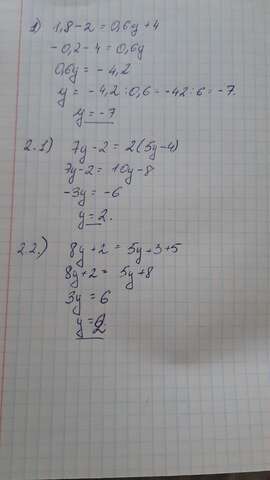 1) 1,8-2=0,6y+4
-0,2-4=0,6y
0,6y=-4,2
y=-4,2:0,6=-42:6=-7.
y=-7
2.1) 7y-2=2(5y-4)
7y-2=10y-8
-3y=-6
y=2.
2.2.) 8y+2=5y+3+5
8y+2=5y+8
3y=6
y=2